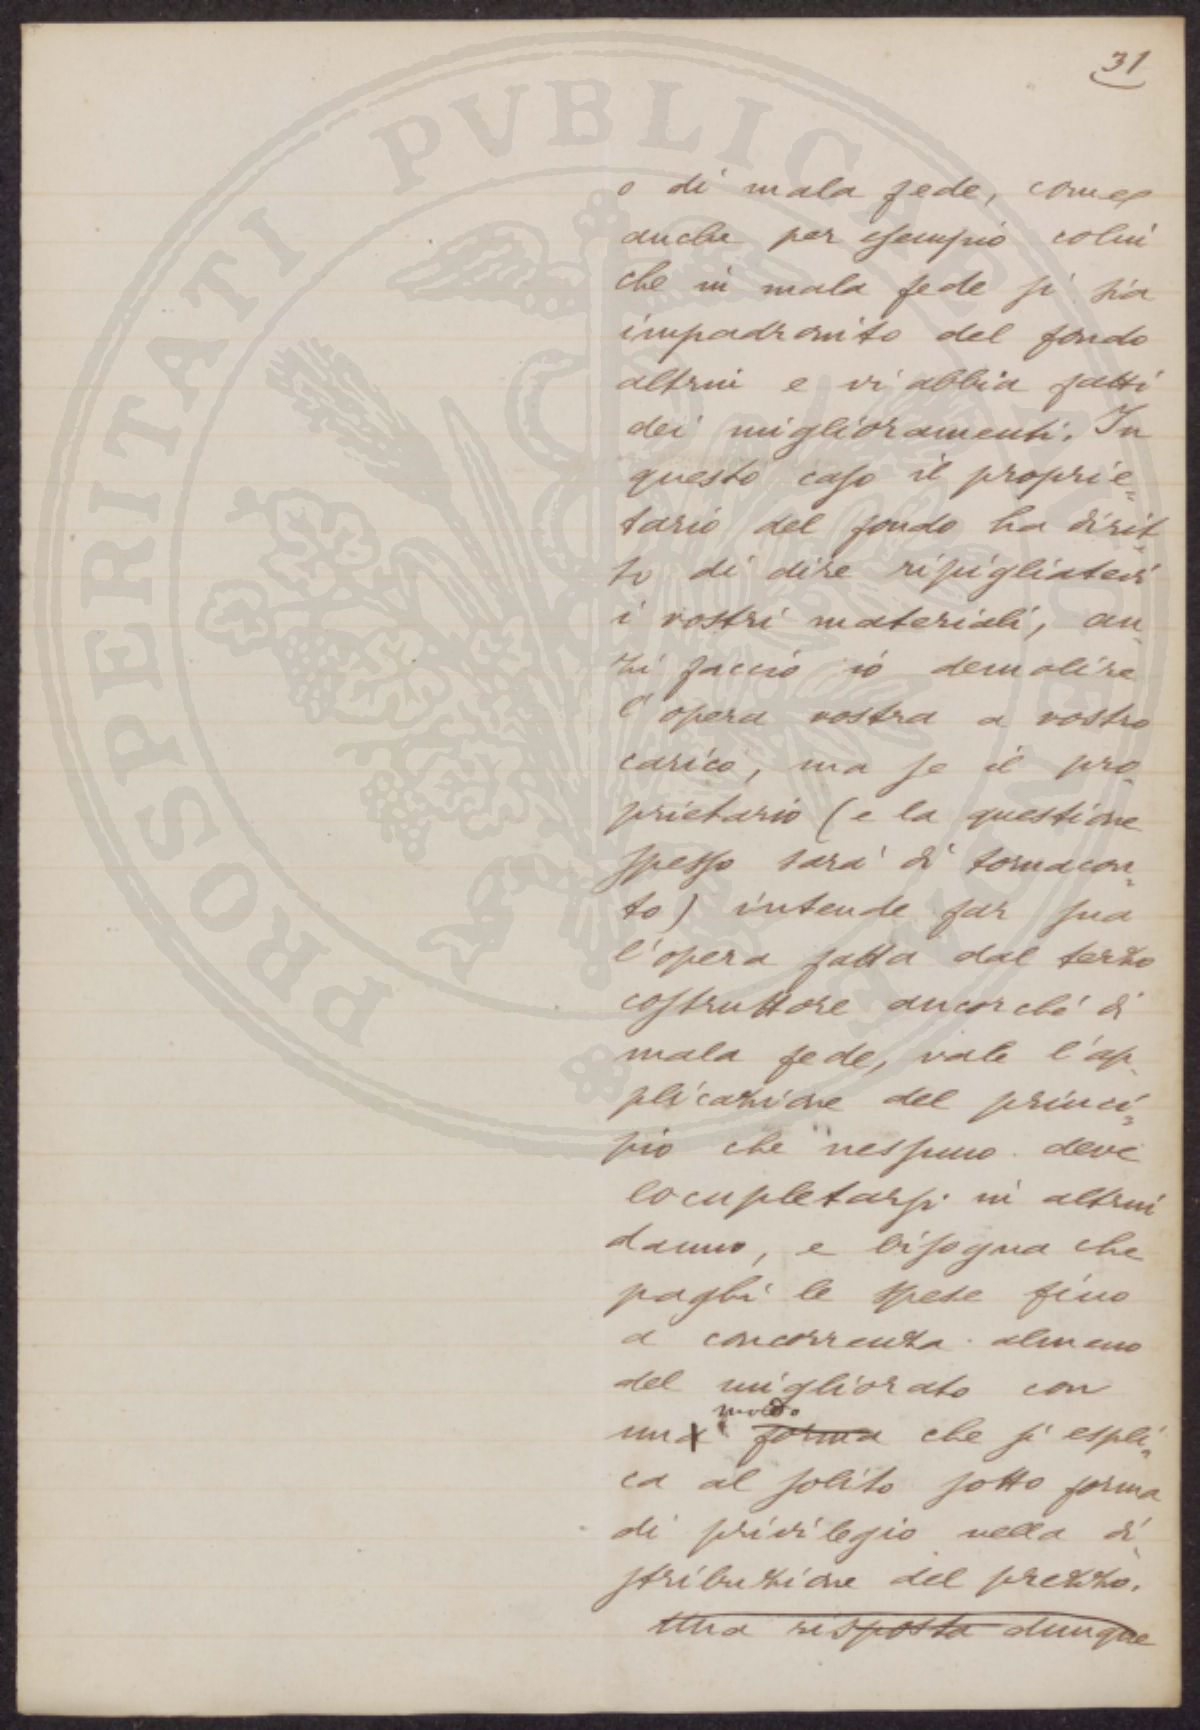 31
o di mala fede, come
anche per esempio colui
che in mala fede si sia
impadronito del fondo
altrui e vi abbia fatti
dei miglioramenti. In
questo caso il proprie=
tario del fondo ha dirit=
to di dire ripigliatevi
i vostri materiali, an=
zi faccio io demolire
l'opera vostra a vostro
carico, ma se il pro=
prietario (e la questione
spesso sarà di tornacon=
to) intende far sua
l'opera fatta dal terzo
costruttore ancorché di
mala fede, vale l'ap=
plicazione del princi=
pio che nessuno deve
locupletarsi in altrui
danno, e bisogna che
paghi le spese fino
a concorrenza almeno
del migliorato con
modo
una forma che si espli=
ca al solito sotto forma
di privilegio nella di=
stribuzione del prezzo.
Una risposta dunque
PROSPERITATI PVBLICAE AVGENDAE